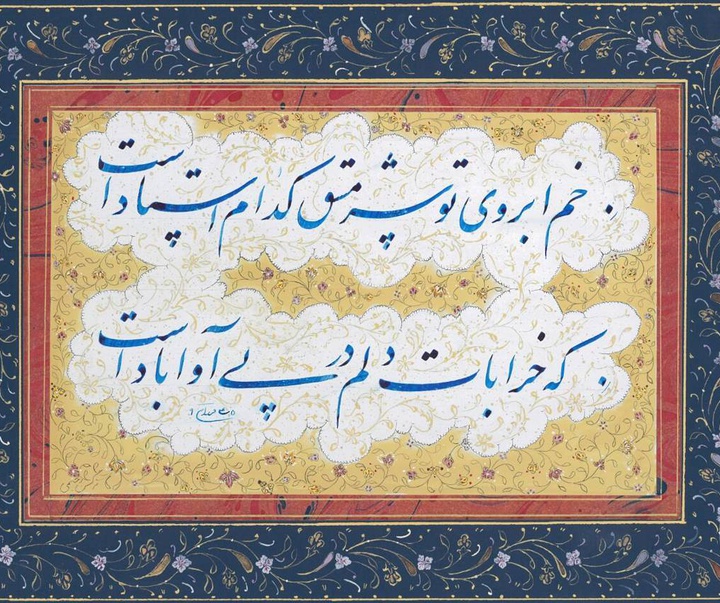 خم ابروی تو سرمشق کدام استاد است
که خرابات دلم در پی آوا باد است